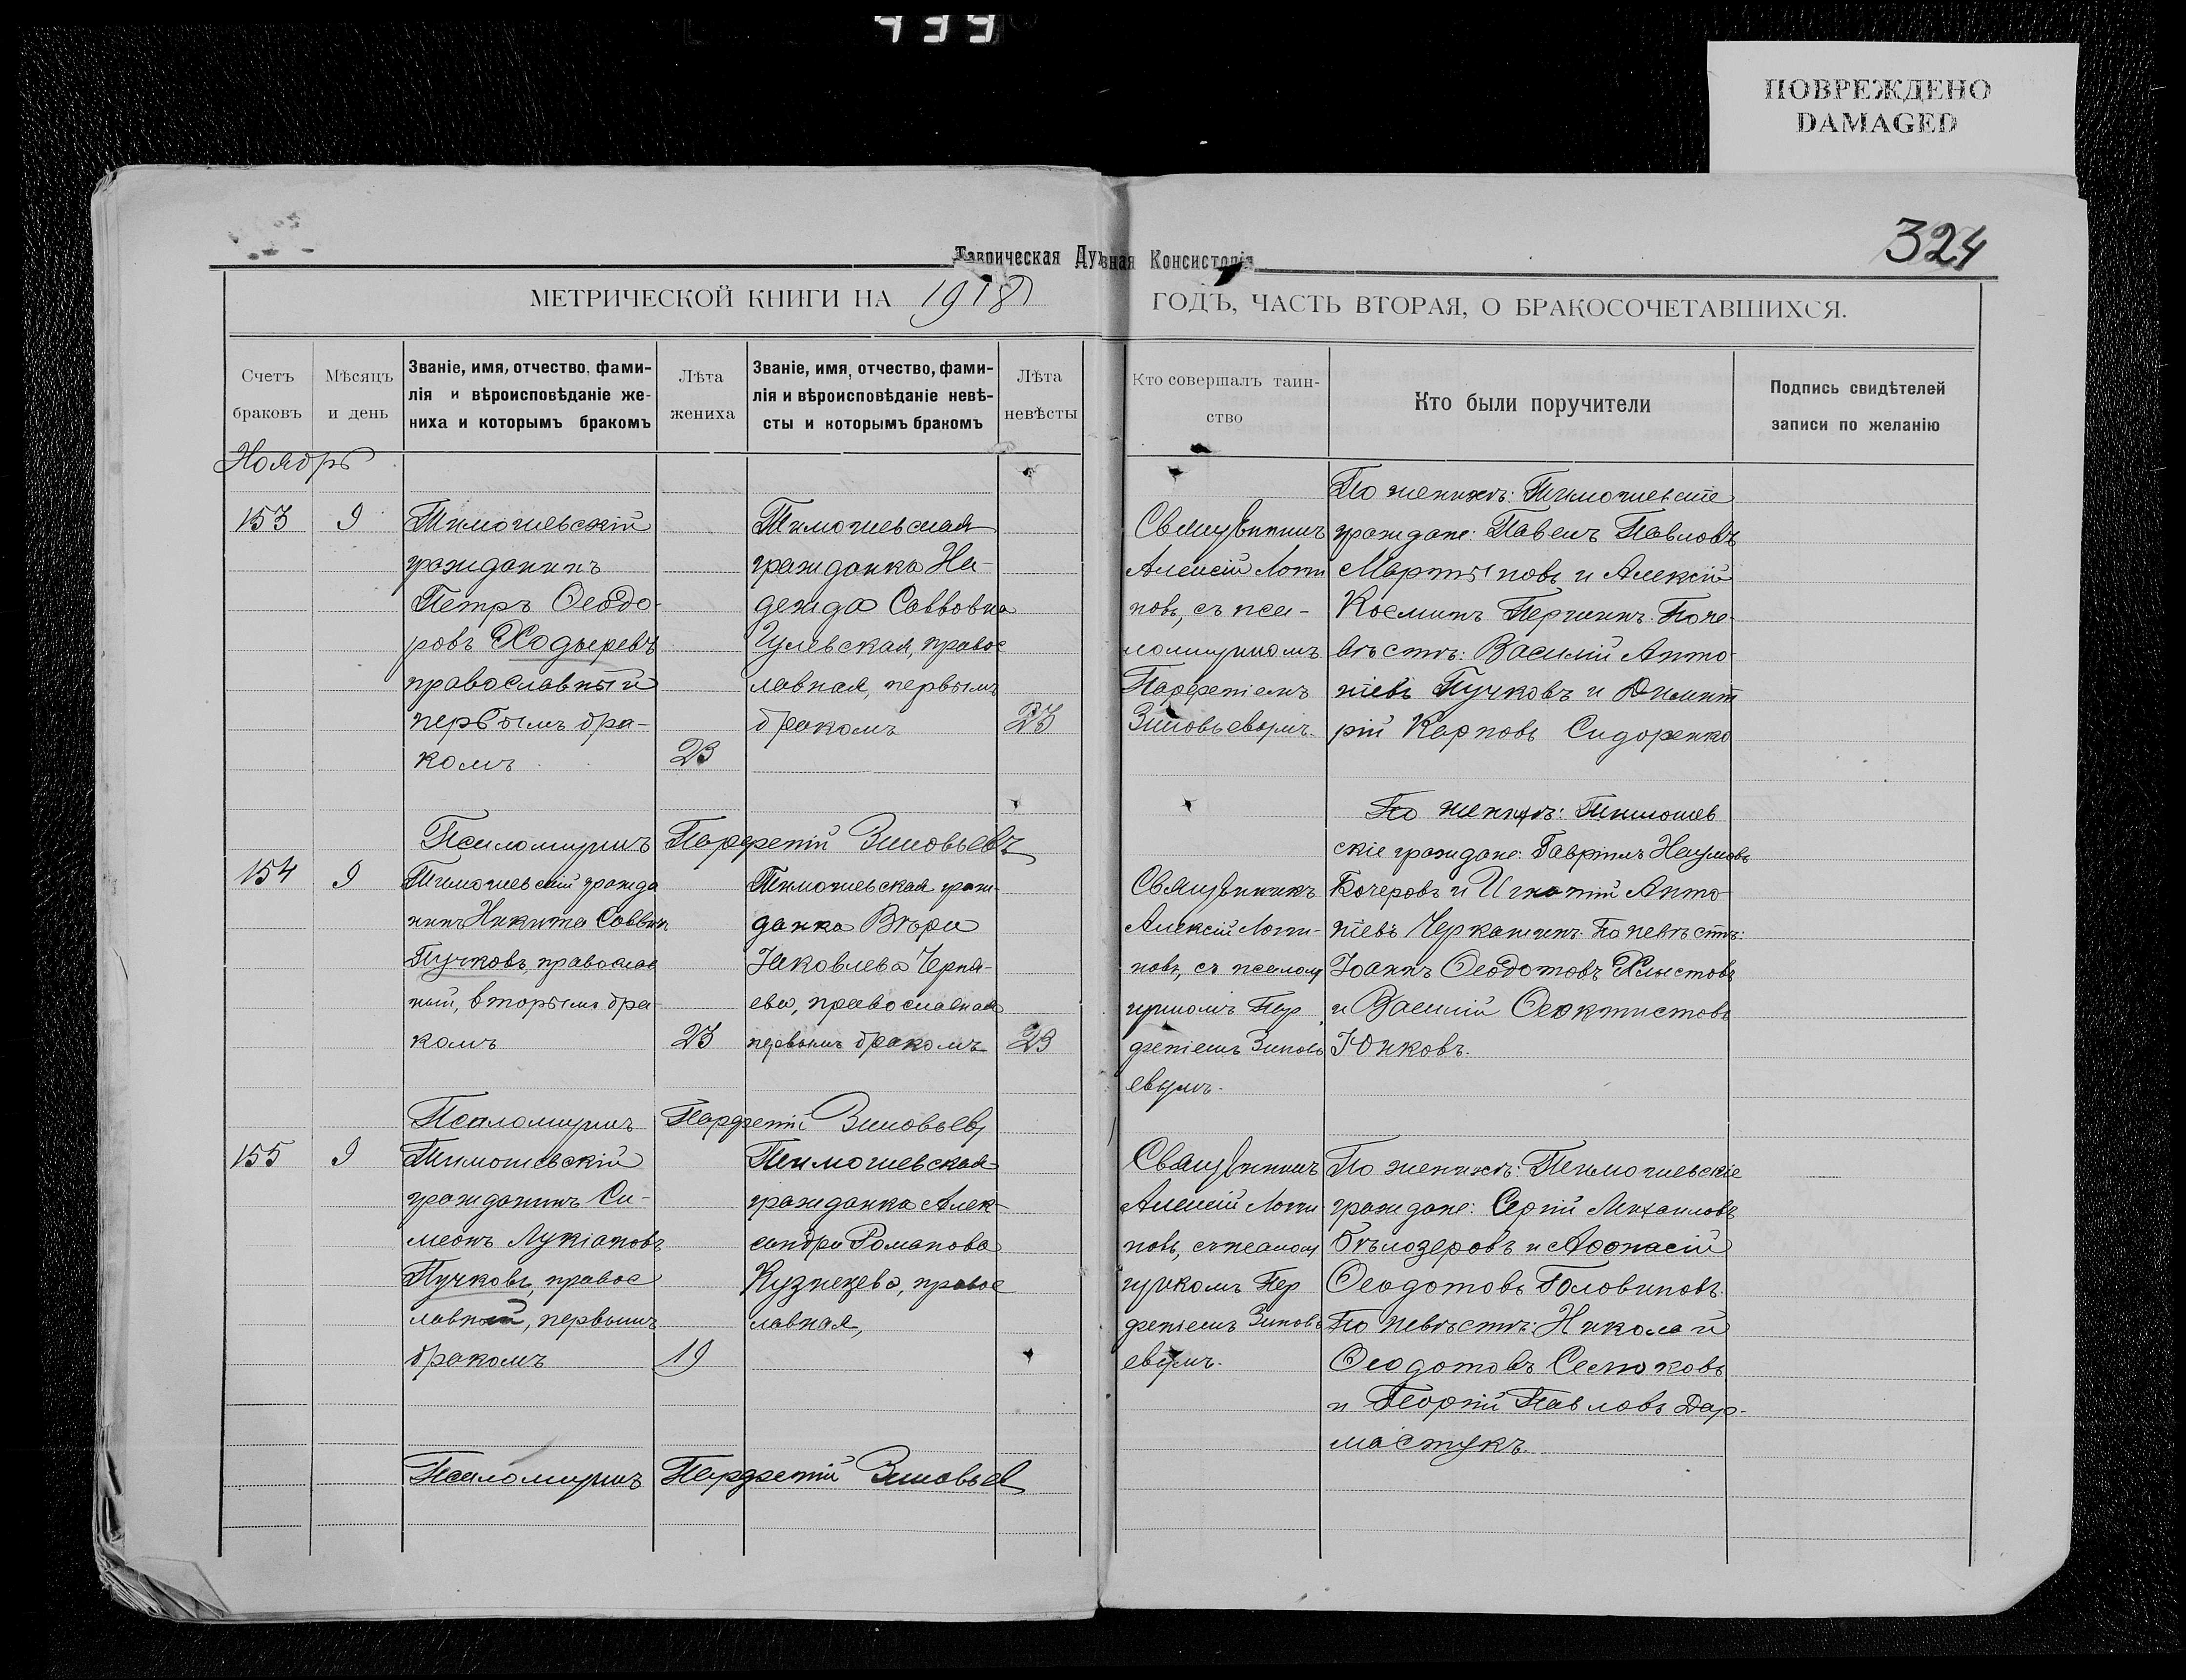 439
ПОВРЕЖДЕНО
DAMAGED
324
Таврическая Духовная Консисторія
МЕТРИЧЕСКОЙ КНИГИ НА 1918 ГОДЪ, ЧАСТЬ ВТОРАЯ, О БРАКОСОЧЕТАВШИХСЯ.
Счетъ
браковъ
Мѣсяцъ
и день
Званіе, имя, отчество, фами-
лія и вѣроисповѣданіе же-
ниха и которымъ бракомъ
Лѣта
жениха
Званіе, имя, отчество, фами-
лія и вѣроисповѣданіе невѣ-
сты и которымъ бракомъ
Лѣта
невѣсты
Кто совершалъ таин-
ство
Кто были поручители
Подпись свидѣтелей
записи по желанію
Ноябрь
153
9
Тимошевскій
гражданинъ
Петръ Ѳеодо-
ровъ Ходыревъ
православный
первымъ бра-
комъ
23
Тимошевская
гражданка На-
дежда Саввовна
Гулевская, правос
лавная, первымъ
бракомъ
23
Священникъ
Алексій Логи
новъ, съ пса-
ломщикомъ
Парѳеніемъ
Зиновьевымъ.
По женихѣ: Тимошевскіе
граждане: Павелъ Павловъ
Мартыновъ и Алексій
Косминъ Першинъ. По не-
вѣстѣ: Василій Анто-
ніевъ Пучковъ и Димит
рій Карповъ Сидоренко
Псаломщикъ Парѳеній Зиновьевъ
154
9
Тимошевскій гражда
нинъ Никита Саввин
Пучковъ, православ
ный, вторымъ бра-
комъ
23
Тимошевская граж-
данка Вѣра
Іаковлева Черня-
ева, православная
первымъ бракомъ
23
Священникъ
Алексій Логи-
новъ, съ псалом
щикомъ Пар
ѳеніемъ Зиновь
евымъ.
По женихѣ: Тимошев
скіе граждане: Гавріилъ Наумовъ
Бочеровъ и Игнатій Анто-
ніевъ Черкашинъ. По невѣстѣ:
Іоаннъ Ѳеодотовъ Хлыстовъ
и Василій Ѳеоктистовъ
Юнковъ.
Псаломщикъ Парѳеній Зиновьевъ
155
9
Тимошевскій
гражданинъ Си-
меонъ Лукіановъ
Пучковъ, правос
лавный, первымъ
бракомъ
19
Тимошевская
гражданка Алек-
сандра Романова
Кузнецева, правос
лавная,
Священникъ
Алексій Логи
новъ, съ псалом
щикомъ Пар
ѳеніемъ Зиновь
евымъ.
По женихѣ: Тимошевскіе
граждане: Сергій Михаиловъ
Бѣлозеровъ и Аѳонасій
Ѳеодотовъ Головиновъ.
По невѣстѣ: Николай
Ѳеодотовъ Селюковъ
и Георгій Павловъ Дар-
мастукъ.
Псаломщикъ Парѳеній Зиновьев